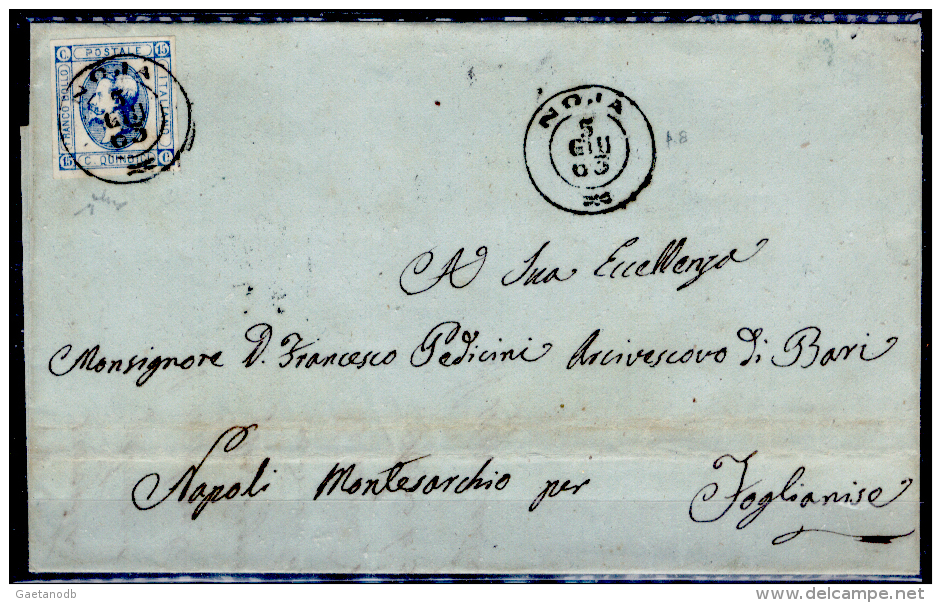 C. POSTALE 15
FRANCO BOLLO
ITALIANO
15 C. QUINDICI C.
NOJA
5
GIU
63
NOJA
5
GIU
63
A Sua Eccellenza
Monsignore D. Francesco Pedicini Arcivescovo di Bari
Napoli Montesarchio per Foglianise
Gaetanodb
delcampe.net